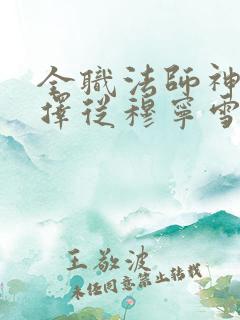 全職法師神
擇從穆寧雪
王敬波
未经同意禁止转载